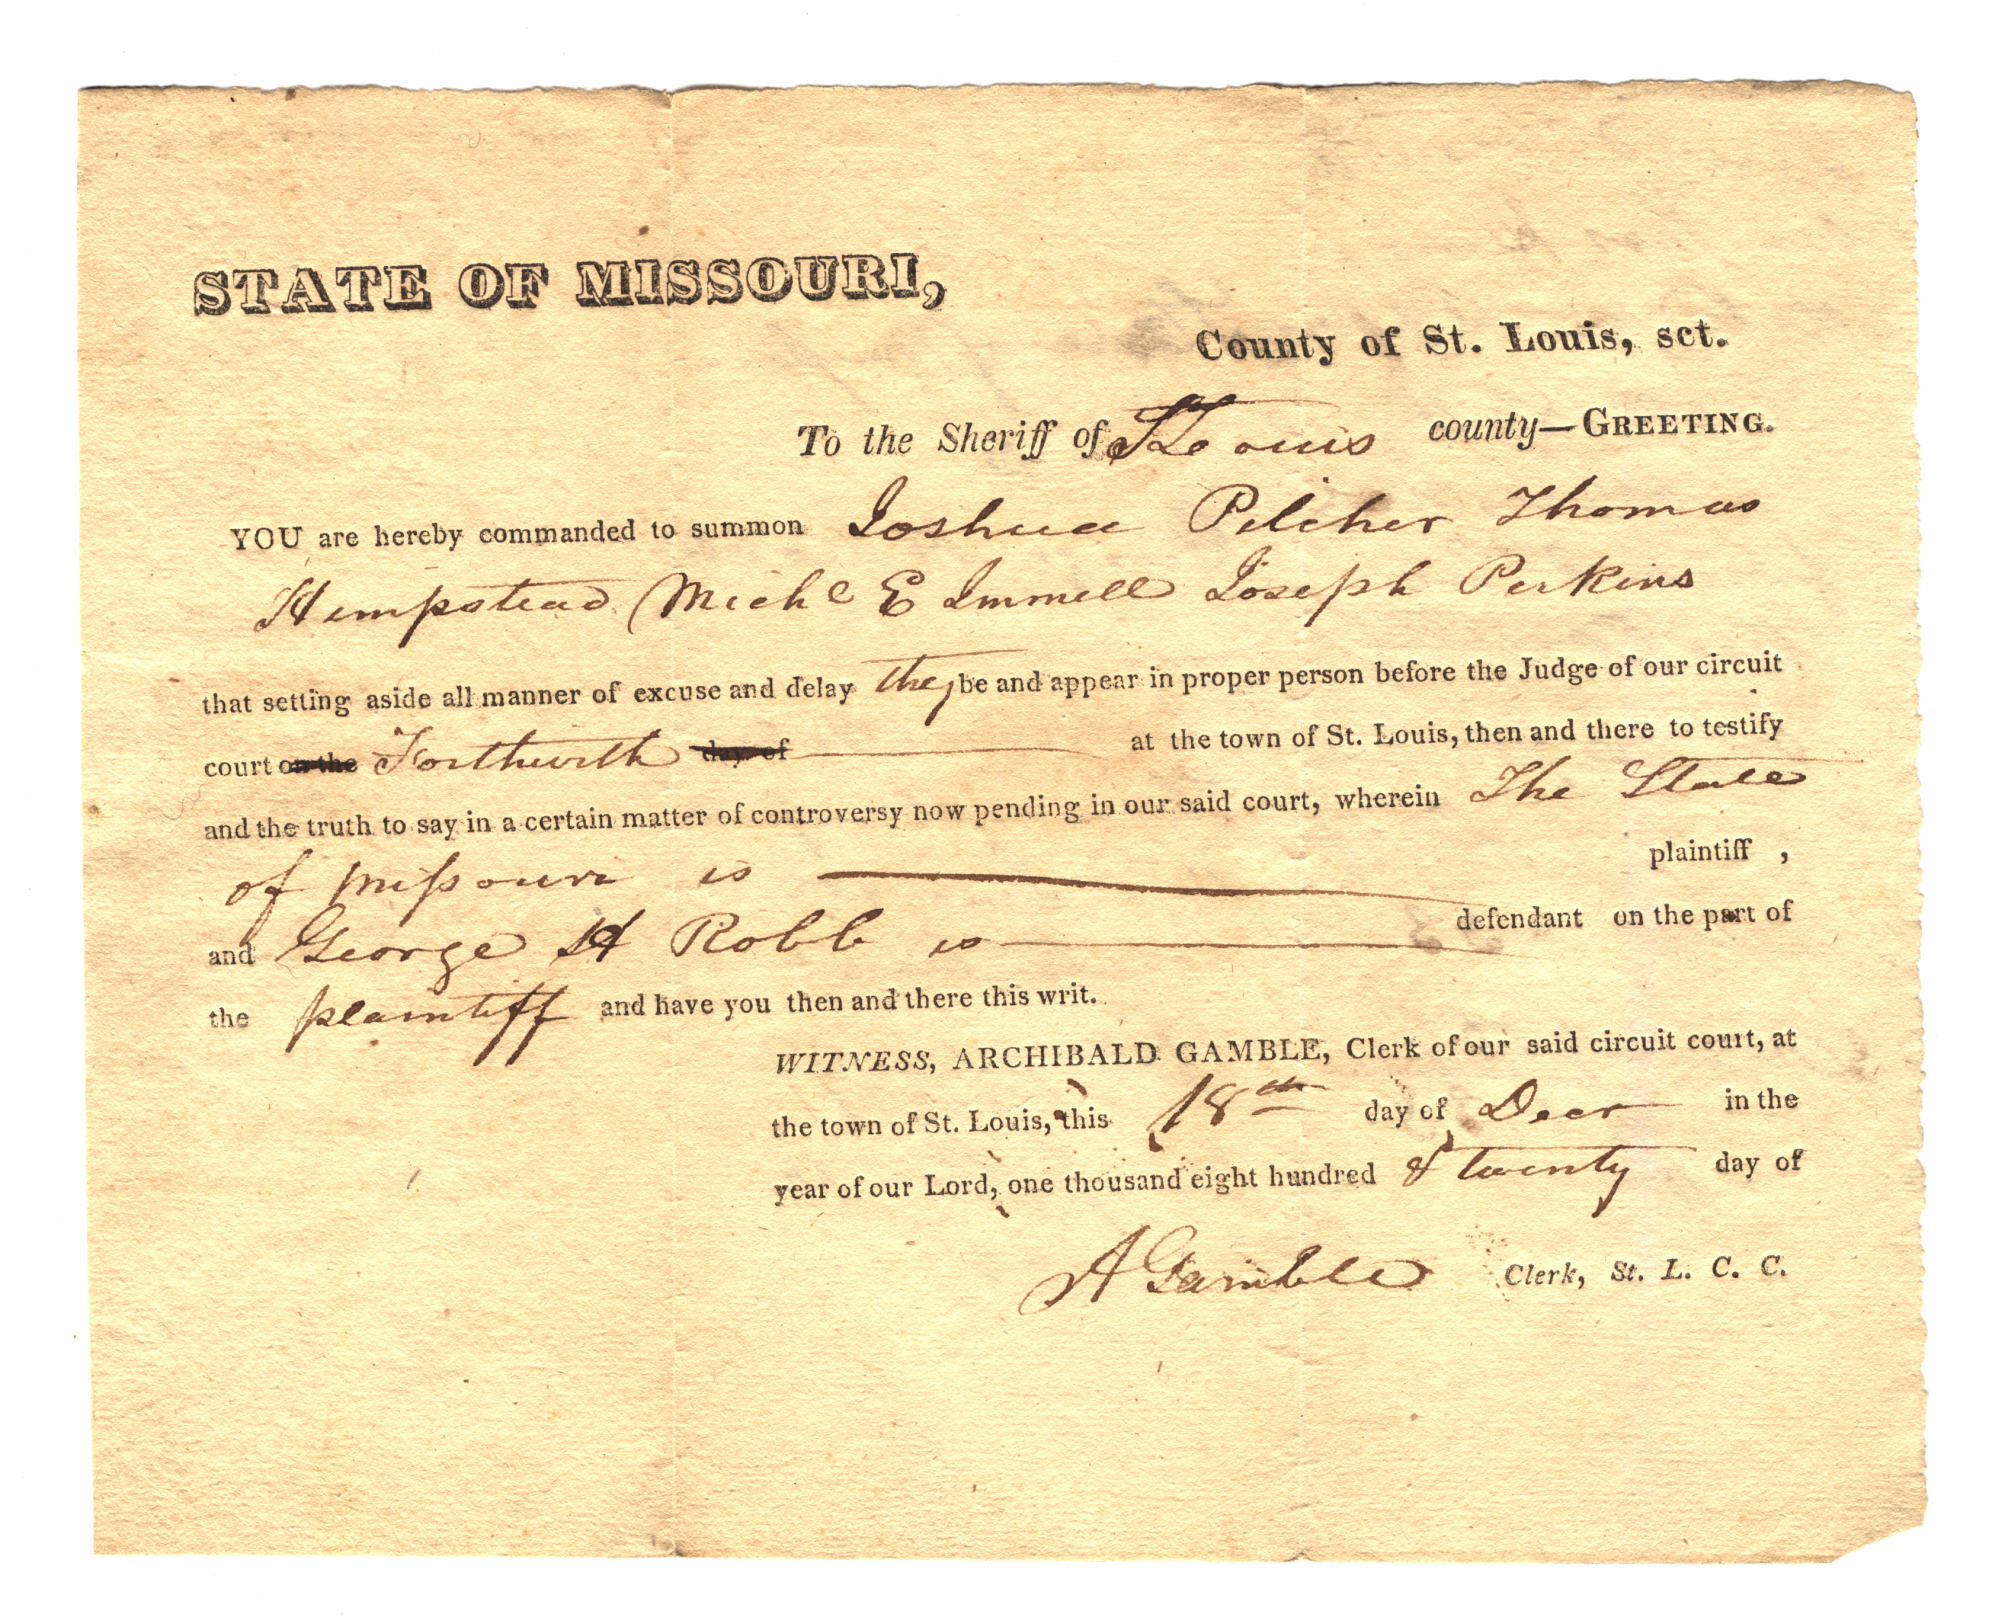 STATE OF MISSOURI,
County of St. Louis, sct.
To the Sheriff of St Louis county—GREETING.
YOU are hereby commanded to summon Joshua Pilcher Thomas
Hempstead Michl E Immell Joseph Perkins
that setting aside all manner of excuse and delay they be and appear in proper person before the Judge of our circuit
court on the Forthwith day of at the town of St. Louis, then and there to testify
and the truth to say in a certain matter of controversy now pending in our said court, wherein The State
of Missouri is plaintiff ,
and George H Robb is defendant on the part of
the plaintiff and have you then and there this writ.
WITNESS, ARCHIBALD GAMBLE, Clerk of our said circuit court, at
the town of St. Louis, this 18th day of Decr in the
year of our Lord, one thousand eight hundred & twenty day of
A Gamble Clerk, St. L. C. C.